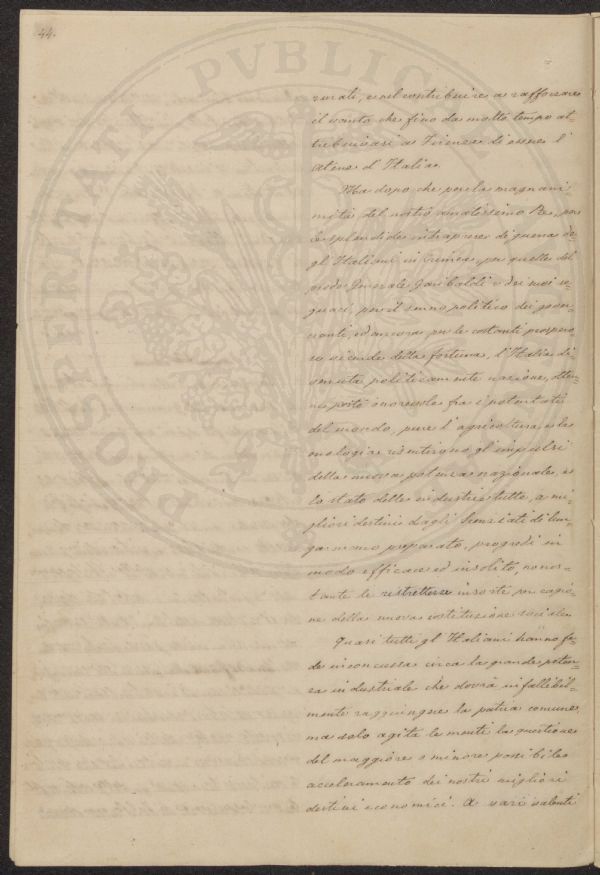 44.
PROSPERITATI PVBLICAE
rurati, e nel contribuire a rafforzare
il vanto che fino da molto tempo at-
tribuivasi a Firenze di essere l'
atene d'Italia.
Ma dopo che per la magnani-
mità del nostro amatissimo Re, per
le splendide intraprese di guerra de-
gl'Italiani in Crimea, per quelle del
prode Generale Garibaldi e dei suoi se-
guaci, per il senno politico dei gover-
nanti, ed ancora per le costanti prospero
se vicende della fortuna, l'Italia di-
venuta politicamente nazione, otten-
ne posto onorevole fra i potentati
del mondo, pure l'agricoltura, e la
enologia risentirono gl'impulsi
della nuova potenza nazionale, e
lo stato delle industrie tutte, a mi-
gliori destini dagli Scenziati di lun-
gammano preparato, progredì in
modo efficace ed insolito, nonos-
tante le restrettezze insorte per cagio-
ne della nuova costituzione sociale.
Quasi tutti gl'Italiani hanno fe-
de inconcussa circa la grande poten-
za industriale che dovrà infallibil-
mente raggiungere la patria comune,
ma solo agita le menti la questione
del maggiore o minore possibile
acceleramento dei nostri migliori
destini economici. A vari valenti